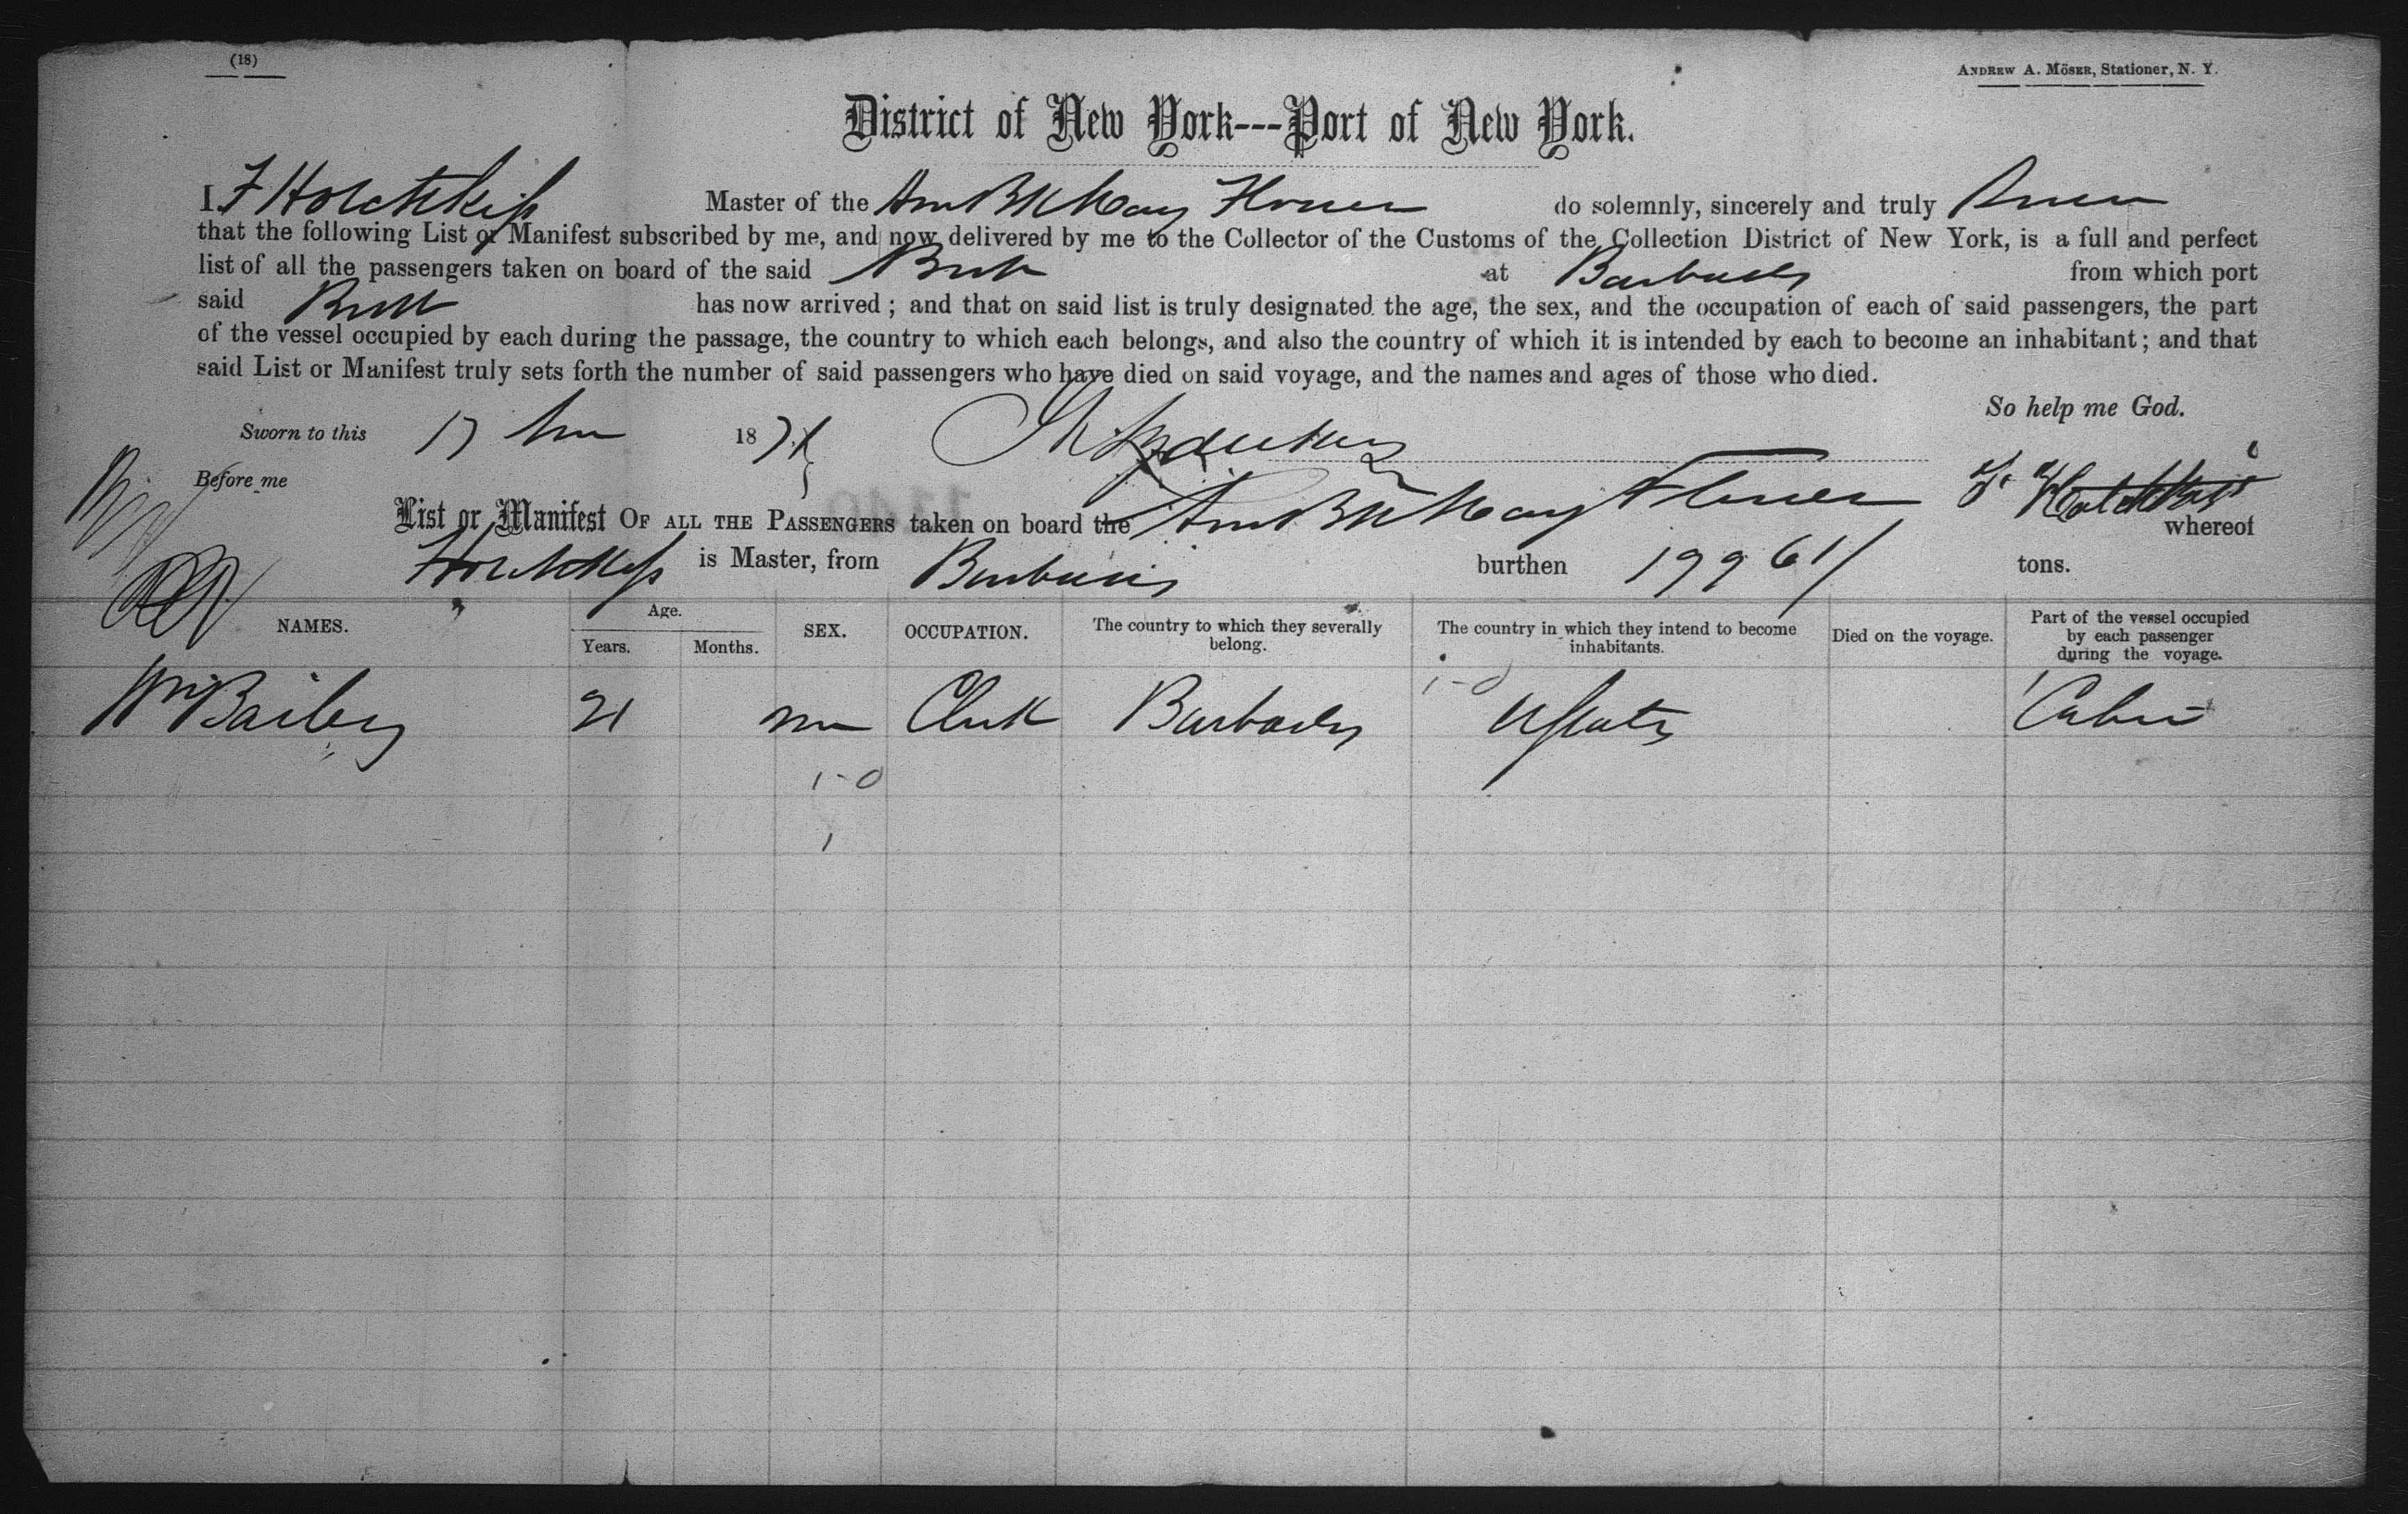 (18)
ANDREW A. MÖSER, Stationer, N. Y.
District of New York---Port of New York.
I, F Hotchkiss Master of the Am Bk May Flower do solemnly, sincerely and truly Swear
that the following List or Manifest subscribed by me, and now delivered by me to the Collector of the Customs of the Collection District of New York, is a full and perfect
list of all the passengers taken on board of the said Brk at Barbados from which port
said Brk has now arrived; and that on said list is truly designated the age, the sex, and the occupation of each of said passengers, the part
of the vessel occupied by each during the passage, the country to which each belongs, and also the country of which it is intended by each to become an inhabitant; and that
said List or Manifest truly sets forth the number of said passengers who have died on said voyage, and the names and ages of those who died.
So help me God.
Sworn to this 17 1871
Before me
F. Hotchkiss
List or Manifest OF ALL THE PASSENGERS taken on board the Am Bk May Flower whereof
Hotchkiss is Master, from Barbados burthen 199 61/ tons.
NAMES. Age. Years. Months. SEX. OCCUPATION. The country to which they severally belong. The country in which they intend to become inhabitants. Died on the voyage. Part of the vessel occupied by each passenger during the voyage.
1-0
Wm Bailey 21 m Clerk Barbados UStates Cabin
1-0
1